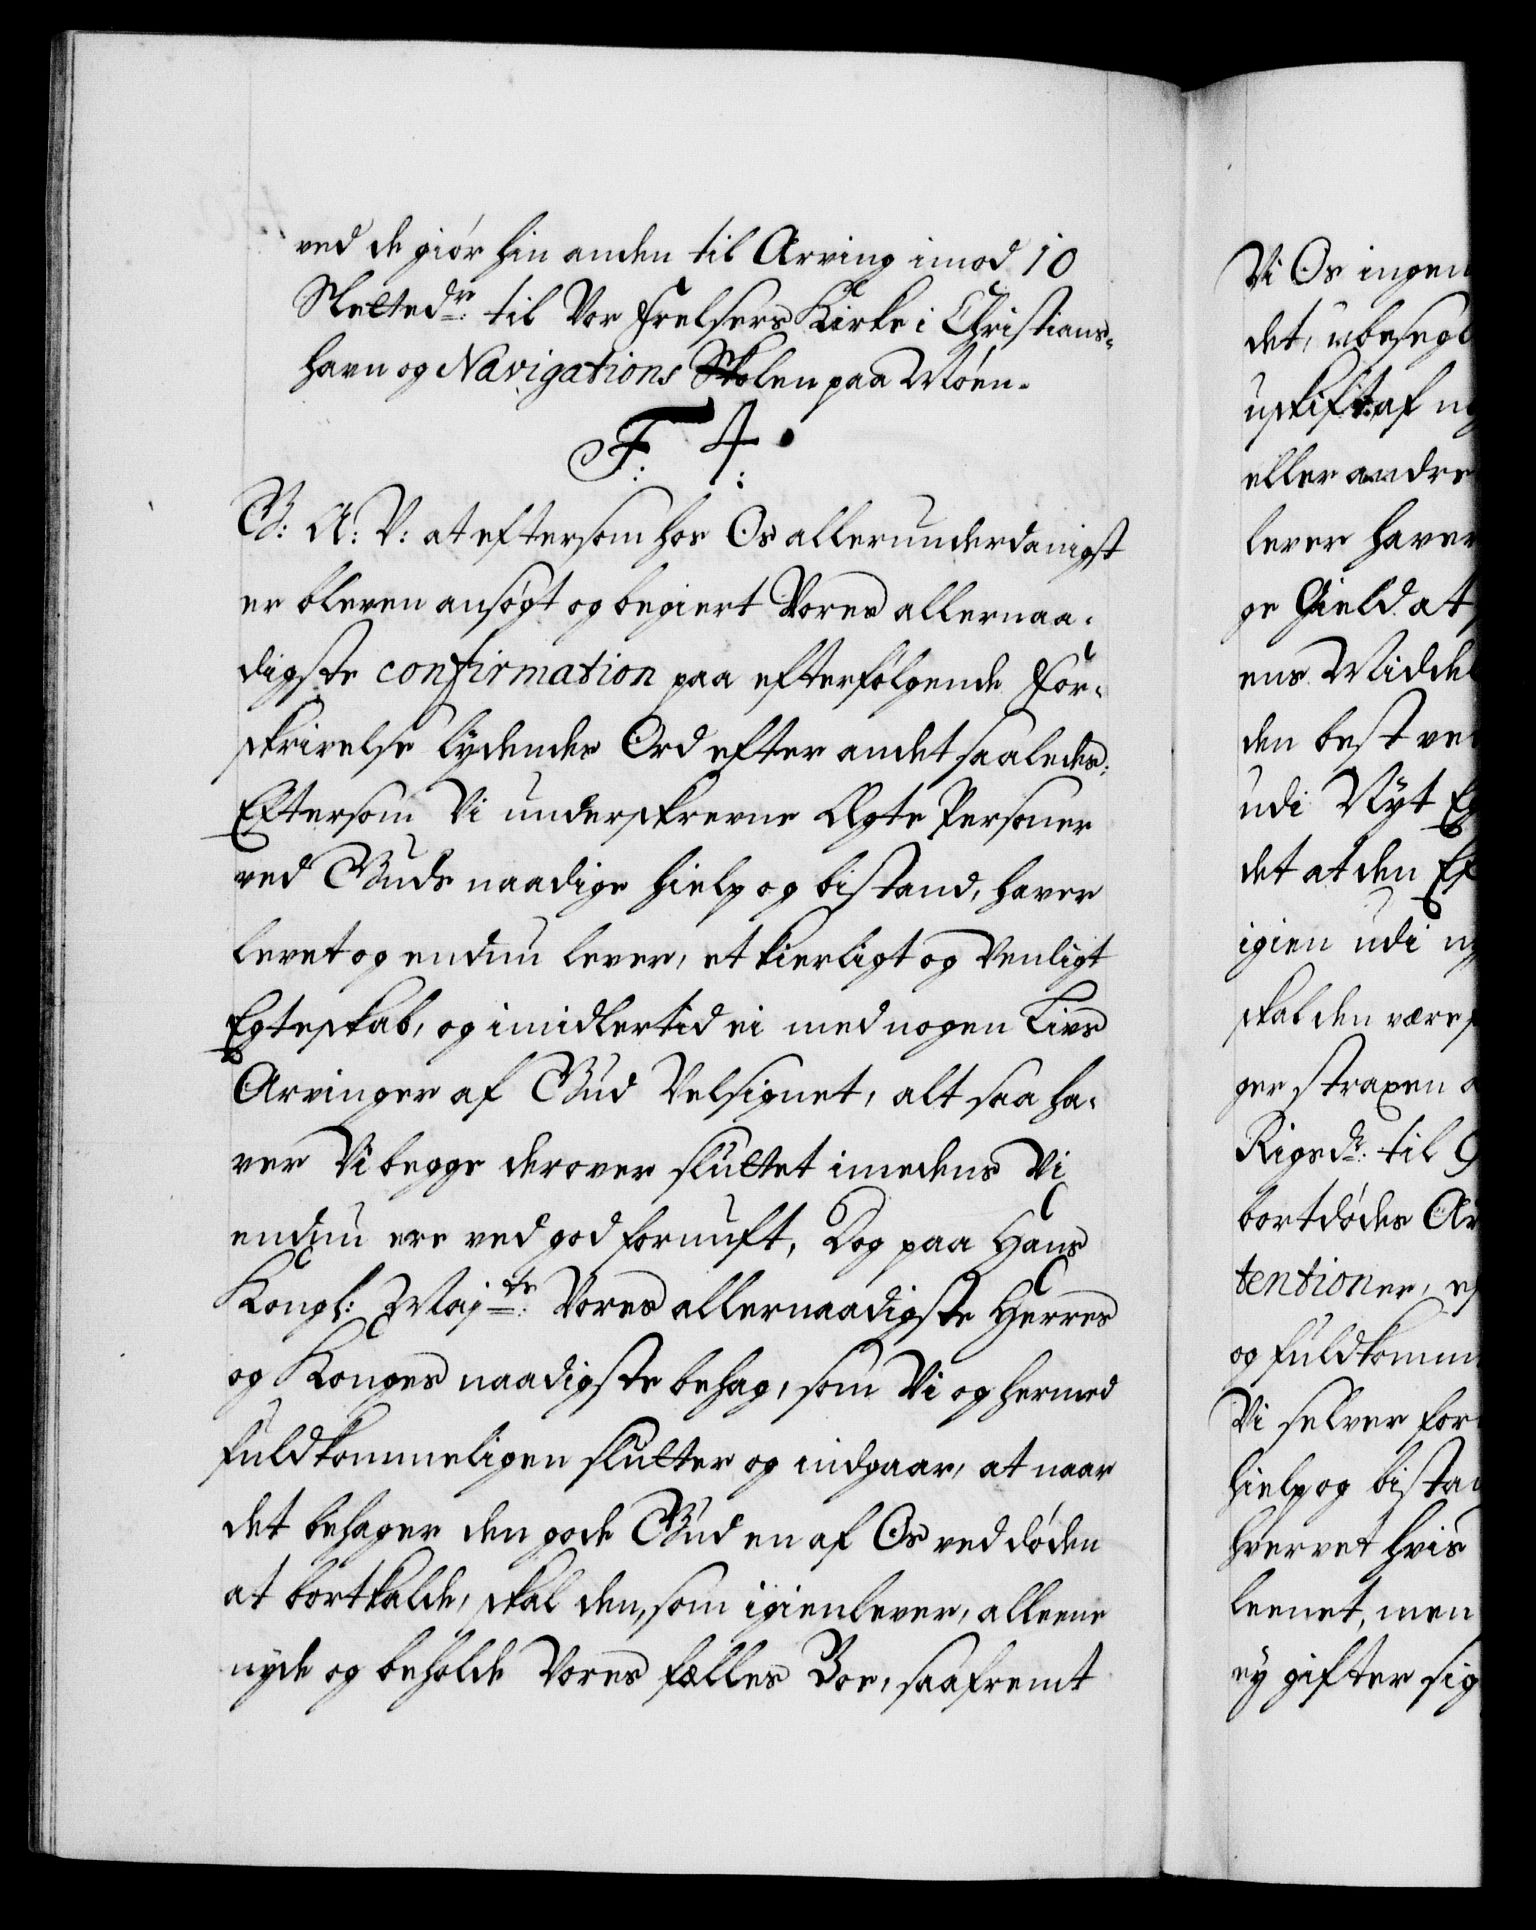 ved de giör hin anden til Arving imod 10
Slettedr: til Vor Frelsers Kirke i Christians-
havn og Navigations Skolen paa Möen.
F. 4.
G: A: V: at eftersom hos Os allerunderdanigst
er bleven ansögt og begiert Vores allernaa-
digste confirmation paa efterfölgende For-
skrivelse lydendes Ord efter andet saaledes:
Eftersom Vi underskrevne Ægte Personer
ved Guds naadige hielp og bistand, haver
levet og endnu lever, et kierligt og Venligt
Egteskab, og imidlertid ei med nogen Livs
Arvinger af Gud Velsignet, alt saa ha-
ver Vi begge derover sluttet imedens Vi
endnu ere ved god fornuft, Dog paa Hans
Kongl: Majts: Vores allernaadigste Herres
og Konges naadigste behag, som Vi og hermed
fuldkommeligen slutter og indgaar, at naar
det behager den gode Gud en af Os ved döden
at bortkalde, skal den, som igienlever, alleene
nyde og beholde Vores fælles Boe, saafremt
Vi Os ingen
det, ubesegl
uskift af
eller andre
lever haver
ge Gield at
ens Middel
den best ve
udi Nyt Eg
det at den Ef
igien udi
skal den være
ger straxen
Rigsdr: til
bortdödes Ar
tentioner,
og fuldkomm
Vi selver for
hielp og bistan
hvervet hvis
leenet, men
ey gifter sig